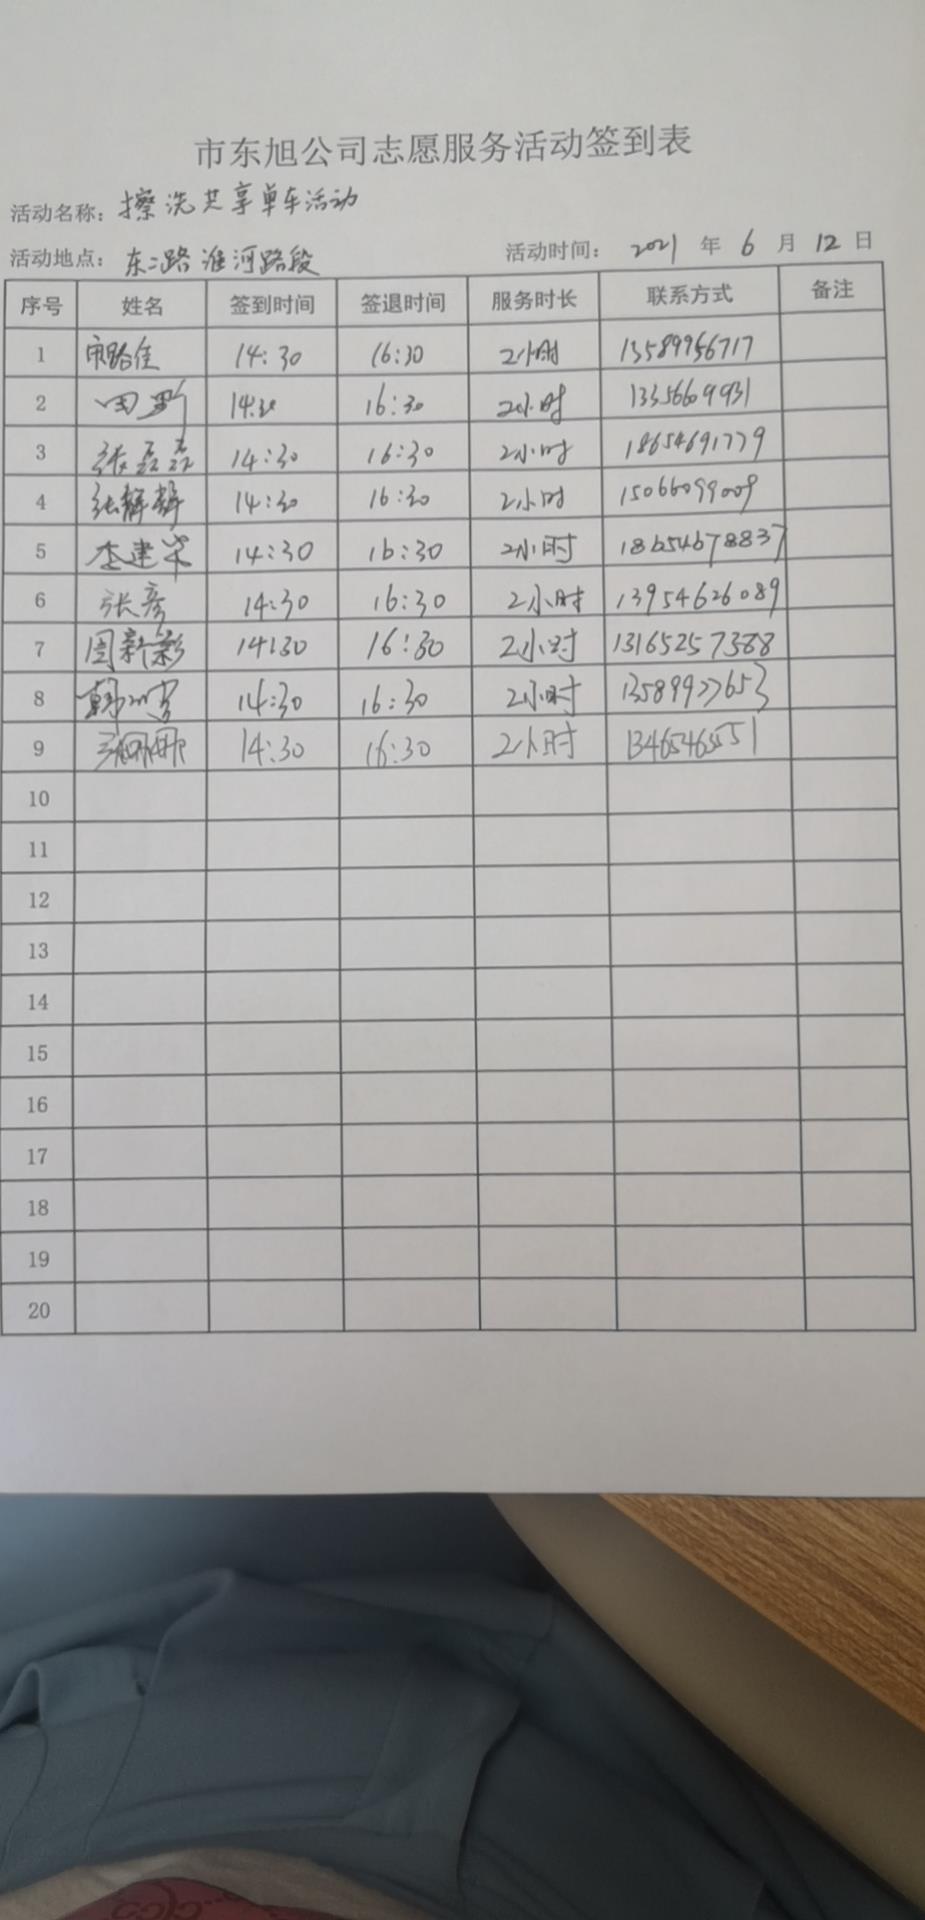 市东旭公司志愿服务活动签到表
活动名称: 擦洗共享单车活动
活动地点: 东二路淮河路段 活动时间: 2021 年 6 月 12 日
序号 姓名 签到时间 签退时间 服务时长 联系方式 备注
1 14:30 16:30 2小时 13589956717
2 田野 14:30 16:30 2小时 13356609931
3 张磊磊 14:30 16:30 2小时 18654691779
4 张静静 14:30 16:30 2小时 15066099009
5 李建华 14:30 16:30 2小时 18654678837
6 张彦 14:30 16:30 2小时 13954626089
7 周新彩 14:30 16:30 2小时 13165257388
8 14:30 16:30 2小时 13589977653
9 14:30 16:30 2小时 13465465551
10
11
12
13
14
15
16
17
18
19
20